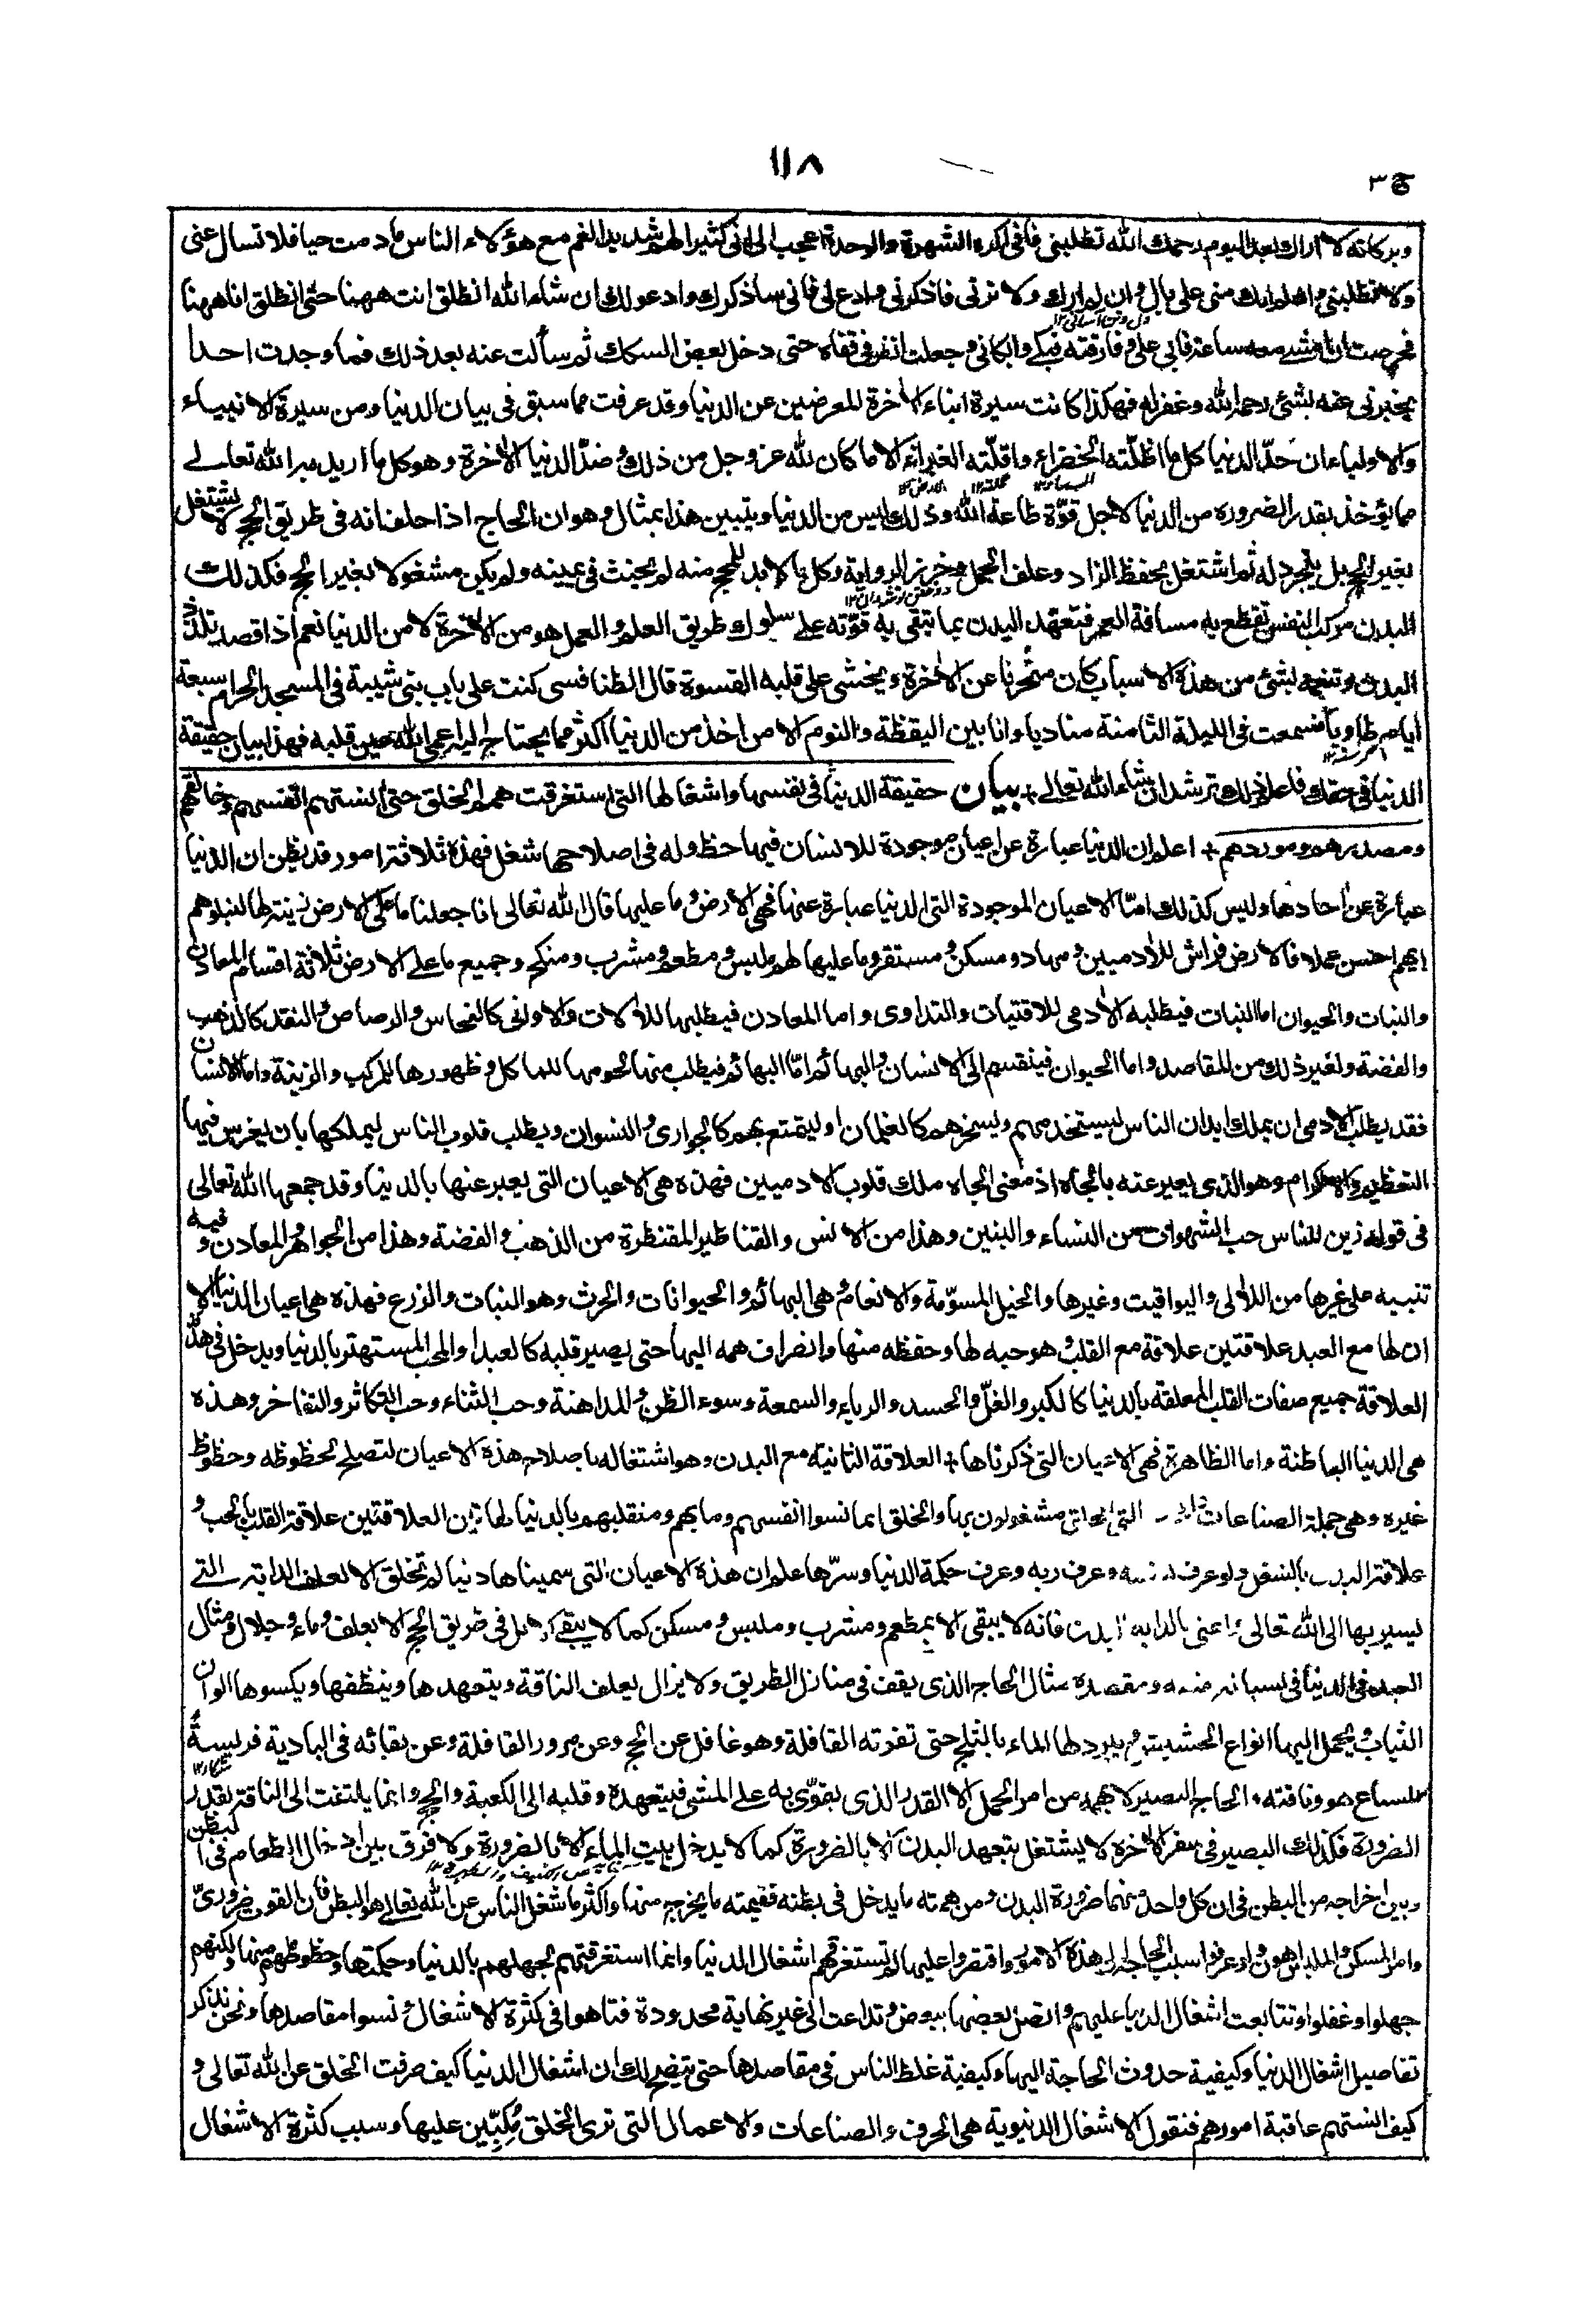 ١١٨
ج ٣
وبركاته لا اراك بعد اليوم رحمك الله تطلبنى فانى اكره الشهرة والوحدة اعجب الى انى كثير الهم شديد الغم مع هؤلاء الناس مادمت حيا فلا تسال عنى
ولا تطلبنى واعلم انك منى على بال وان لم ارك ولا ترنى فاذكرنى وادع لى فانى ساذكرك وادعو لك ان شاء الله انطلق انت ههنا حتى انطلق انا ههنا
فحرصت ان امشى معه ساعة فابى على وفارقته فبكى وابكانى وجعلت انظر فى قفاه حتى دخل بعض السكك ثم سألت عنه بعد ذلك فما وجدت احدا
يخبرنى عنه بشئ رحمه الله وغفر له فهكذا كانت سيرة ابناء الاخرة المعرضين عن الدنيا وقد عرفت مما سبق فى بيان الدنيا ومن سيرة الانبياء
والاولياء ان حدّ الدنيا كل ما اظلته الخضراء واقلّته الغبراء الا ما كان لله عز وجل من ذلك وضدّ الدنيا الاخرة وهو كل ما اريد به الله تعالى
مما يؤخذ بقدر الضرورة من الدنيا لاجل قوّة طاعة الله وذلك ليس من الدنيا ويتبين هذا بمثال وهو ان الحاج اذا حلف انه فى طريق الحج لا يشتغل
بغير الحج بل يتجرد له ثم اشتغل بحفظ الزاد وعلف الجمل وخرز الرواية وكل ما لا بد للحج منه لم يحنث فى يمينه ولم يكن مشغولا بغير الحج فكذلك
البدن مركب النفس تقطع به مسافة العمر فتعهد البدن بما تبقى به قوّته على سلوك طريق العلم والعمل هو من الاخرة لا من الدنيا نعم اذا قصد تلذذ
البدن وتنعمه بشئ من هذه الاسباب كان منحرفا عن الاخرة ويخشى على قلبه القسوة قال الطنافسى كنت على باب بنى شيبة فى المسجد الحرام سبعة
ايام طاويا فسمعت فى الليلة الثامنة مناديا وانا بين اليقظة والنوم الا من اخذ من الدنيا اكثر مما يحتاج اليه اعمى الله عين قلبه فهذا بيان حقيقة
الدنيا فى حقك فاعلم ذلك ترشد ان شاء الله تعالى + بيان حقيقة الدنيا فى نفسها واشغالها التى استغرقت همم الخلق حتى انستهم انفسهم وخالقهم
ومصدرهم وموردهم + اعلم ان الدنيا عبارة عن اعيان موجودة للانسان فيها حظ وله فى اصلاحها شغل فهذه ثلاثة امور قد يظن ان الدنيا
عبارة عن احادها وليس كذلك امّا الاعيان الموجودة التى الدنيا عبارة عنها فهى الارض وما عليها قال الله تعالى انا جعلنا ما على الارض زينة لها لنبلوهم
ايهم احسن عملا فالارض فراش للآدميين ومهاد ومسكن ومستقر وما عليها لهم ملبس ومطعم ومشرب ومنكح وجميع ما على الارض ثلاثة اقسام المعادن
والنبات والحيوان اما النبات فيطلبه الآدمى للاقتيات والتداوى واما المعادن فيطلبها للآلات والاوانى كالنحاس والرصاص والنقد كالذهب
والفضة ولغير ذلك من المقاصد واما الحيوان فينقسم الى الانسان والبهائم امّا البهائم فيطلب منها لحومها للمآكل وظهورها للمركب والزينة واما الانسان
فقد يطلب الآدمى ان يملك ابدان الناس ليستخدمهم ويسخرهم كالغلمان او ليتمتع بهم كالجوارى والنسوان ويطلب قلوب الناس ليملكها بان يغرس فيها
التعظيم والاكرام وهو الذى يعبر عنه بالجاه اذ معنى الجاه ملك قلوب الآدميين فهذه هى الاعيان التى يعبر عنها بالدنيا وقد جمعها الله تعالى
فى قوله زين للناس حب الشهوات من النساء والبنين وهذا من الانس والقناطير المقنطرة من الذهب والفضة وهذا من الجواهر والمعادن وفيه
تنبيه على غيرها من اللآلى واليواقيت وغيرها والخيل المسوّمة والانعام وهى البهائم والحيوانات والحرث وهو النبات والزرع فهذه هى اعيان الدنيا الا
ان لها مع العبد علاقتين علاقة مع القلب وهو حبه لها وحفظه منها وانصراف همه اليها حتى يصير قلبه كالعبد او المحب المستهتر بالدنيا ويدخل فى هذه
العلاقة جميع صفات القلب المعلقة بالدنيا كالكبر والغلّ والحسد والرياء والسمعة وسوء الظن والمداهنة وحب الثناء وحب التكاثر والتفاخر وهذه
هى الدنيا الباطنة واما الظاهرة فهى الاعيان التى ذكرناها + العلاقة الثانية مع البدن وهو اشتغاله باصلاح هذه الاعيان لتصلح لحظوظه وحظوظ
غيره وهى جملة الصناعات التى الخلق مشغولون بها والخلق انما نسوا انفسهم وما بهم ومنقلبهم بالدنيا لهاتين العلاقتين علاقة القلب بالحب و
علاقة البدن بالشغل ولو عرف نفسه وعرف ربه وعرف حكمة الدنيا وسرّها علم ان هذه الاعيان التى سميناها دنيا لم تخلق الا لعلف الدابة التى
يسير بها الى الله تعالى واعنى بالدابة البدن فانه لا يبقى الا بمطعم ومشرب وملبس ومسكن كما لا يبقى الابل فى طريق الحج الا بعلف وماء وجلال ومثال
العبد فى الدنيا فى نسيانه نفسه ومقصده مثال الحاج الذى يقف فى منازل الطريق ولا يزال يعلف الناقة ويتعهدها وينظفها ويكسوها الوان
الثياب ويحمل اليها انواع الحشيش ويبرد لها الماء بالثلج حتى تفوته القافلة وهو غافل عن الحج وعن مرور القافلة وعن بقائه فى البادية فريسةً
للسباع هو وناقته والحاج البصير لا يهمه من امر الجمل الا القدر الذى يقوّى به على المشى فيتعهده وقلبه الى الكعبة والحج وانما يلتفت الى الناقة بقدر
الضرورة فكذلك البصير فى سفر الاخرة لا يشتغل بتعهد البدن الا بالضرورة كما لا يدخل بيت الماء الا بالضرورة ولا فرق بين ادخال الطعام فى البطن
وبين اخراجه من البطن فى ان كل واحد منهما ضرورة البدن ومن همته ما يدخل فى بطنه فقيمته ما يخرج منها واكثر ما شغل الناس عن الله تعالى هو البطن فان القوت ضرورىّ
وامر المسكن والملبس اهون ولو عرفوا سبب الحاجة الى هذه الامور واقتصروا عليها لم تستغرقهم اشغال الدنيا وانما استغرقتهم لجهلهم بالدنيا وحكمتها وحظوظهم منها ولكنهم
جهلوا وغفلوا وتتابعت اشغال الدنيا عليهم واتصل بعضها ببعض وتداعت الى غير نهاية محدودة فتاهوا فى كثرة الاشغال ونسوا مقاصدها ونحن نذكر
تفاصيل اشغال الدنيا وكيفية حدوث الحاجة اليها وكيفية غلط الناس فى مقاصدها حتى يتضح لك ان اشغال الدنيا كيف صرفت الخلق عن الله تعالى و
كيف انستهم عاقبة امورهم فنقول الاشغال الدنيوية هى الحرف والصناعات والاعمال التى ترى الخلق مُكِبّين عليها وسبب كثرة الاشغال